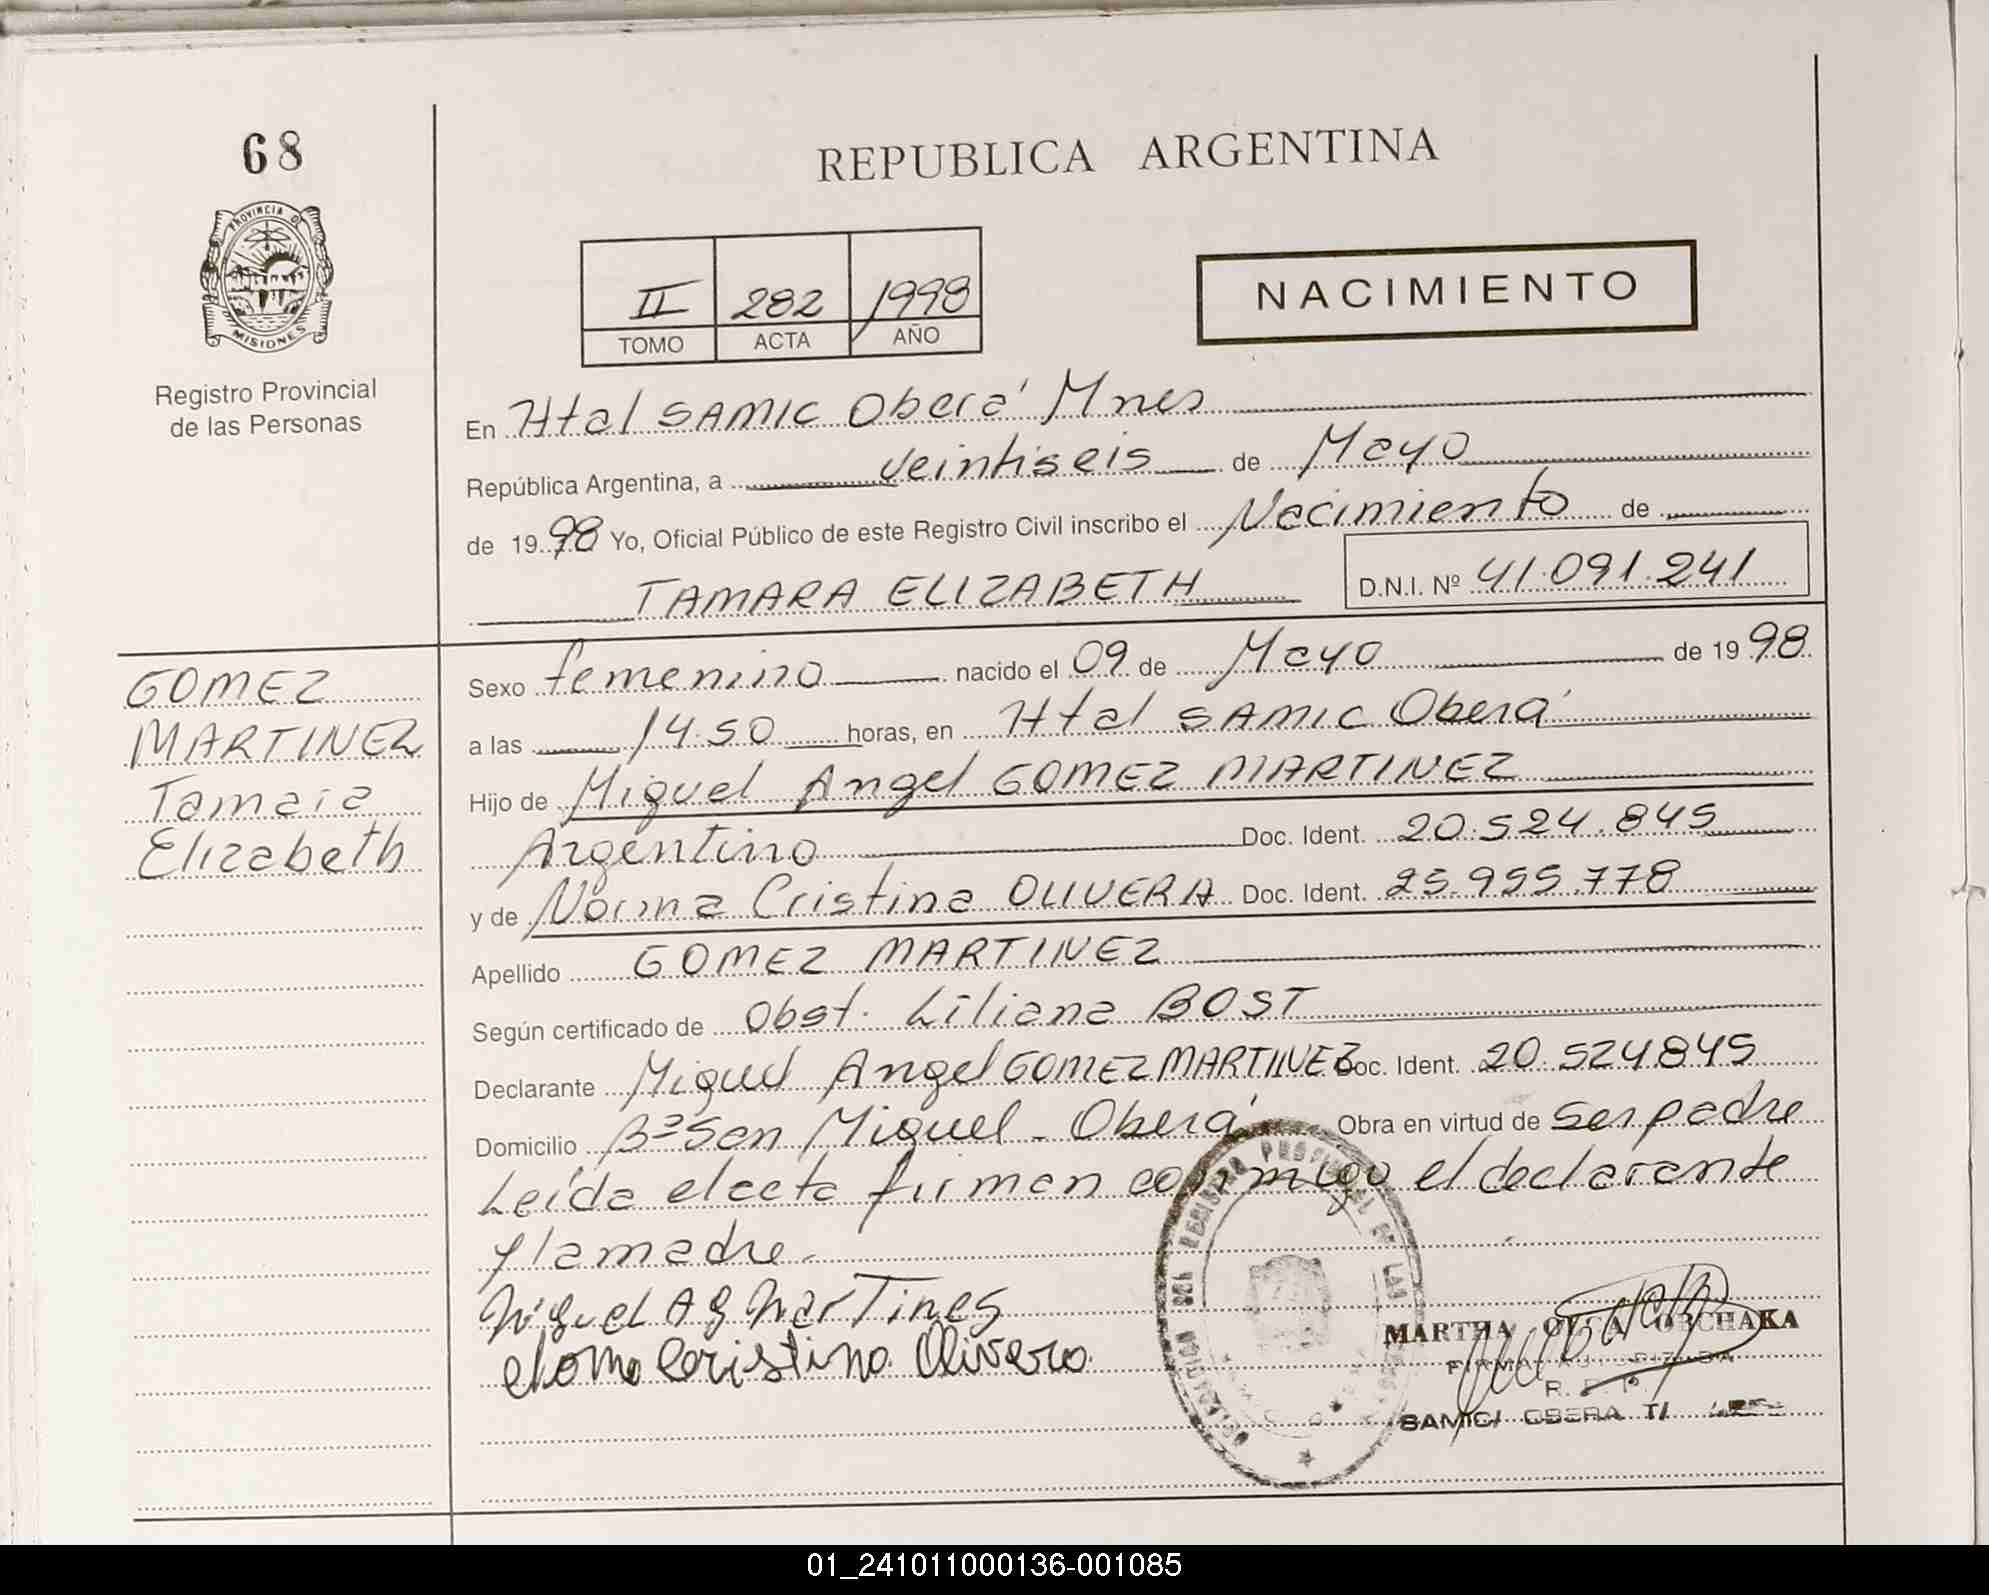 68
REPUBLICA ARGENTINA
PROVINCIA DE
MISIONES
Registro Provincial
de las Personas
II 282 1998
TOMO ACTA AÑO
NACIMIENTO
En Htal SAMIC Oberá Mnes
República Argentina, a veintiseis de Mayo
de 1998 Yo, Oficial Público de este Registro Civil inscribo el Nacimiento de
TAMARA ELIZABETH D.N.I. Nº 41.091.241
GOMEZ
MARTINEZ
Tamara
Elizabeth
Sexo femenino nacido el 09 de Mayo de 1998
a las 14.50 horas, en Htal SAMIC Oberá
Hijo de Miguel Angel GOMEZ MARTINEZ
Argentino Doc. Ident. 20.524.845
y de Norma Cristina OLIVERA Doc. Ident. 25.955.778
Apellido GOMEZ MARTINEZ
Según certificado de Obst. Liliana BOST
Declarante Miguel Angel GOMEZ MARTINEZ Doc. Ident. 20.524845
Domicilio Bº San Miguel - Oberá Obra en virtud de ser padre
Leída el acta firman conmigo el declarante
y la madre.
Miguel A G MarTines
Cristina Olivera
DELEGACION DEL REGISTRO PROVINCIAL DE LAS
MARTHA OBCHAKA
FIRMA
SAMIC/ OBERA
01_241011000136-001085